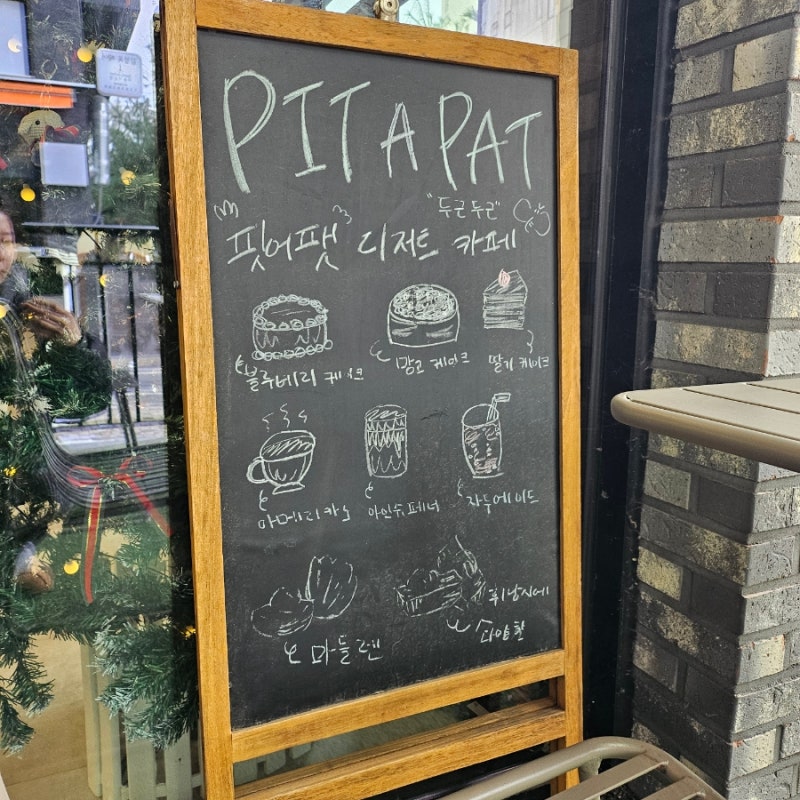 PIT A PAT
"두근두근"
핏어팻 디저트 카페
블루베리 케이크
망고 케이크
딸기 케이크
아메리카노
아인슈페너
자두에이드
마들렌
휘낭시에
다양한